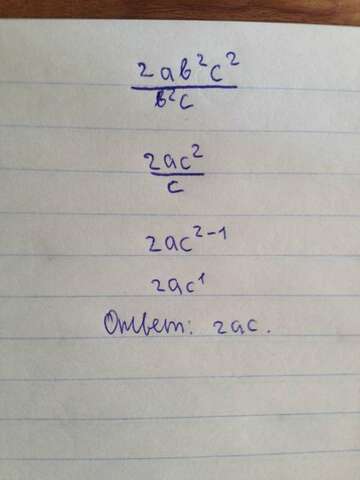 2ab²c²
b²c
2ac²
c
2ac²⁻¹
2ac¹
Ответ: 2ac.